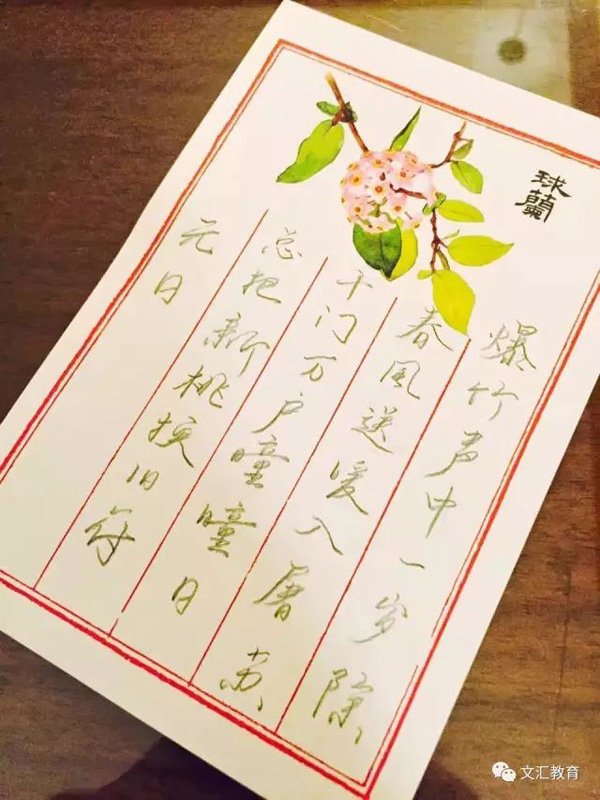 球蘭
爆竹声中一岁除
春風送暖入屠苏
千门万户瞳瞳日
总把新桃换旧符
元日
文汇教育